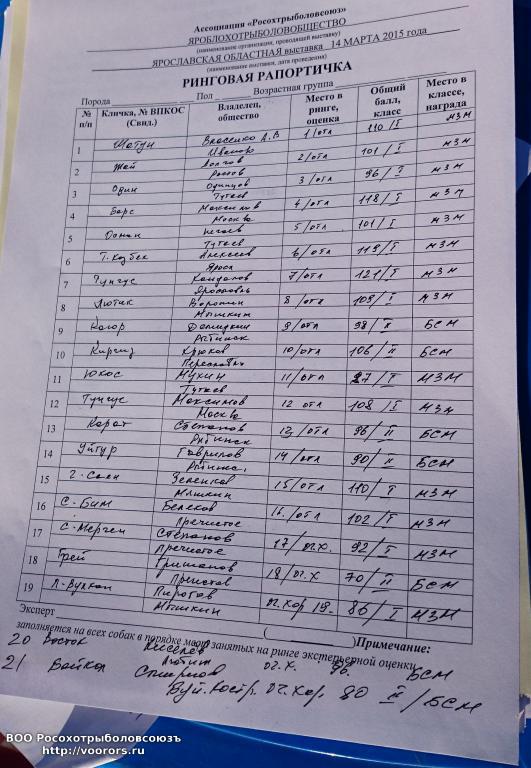 Ассоциация «Росохотрыболовсоюз»
ЯРОБЛОХОТРЫБОЛОВОБЩЕСТВО
(наименование организации, проводящей выставку)
ЯРОСЛАВСКАЯ ОБЛАСТНАЯ выставка 14 МАРТА 2015 года
(наименование выставки, дата проведения)
РИНГОВАЯ РАПОРТИЧКА
Порода Пол Возрастная группа
№ п/п Кличка, № ВПКОС (Свид.) Владелец, общество Место в ринге, оценка Общий балл, класс Место в классе, награда
1 Власенко А.В 1/отл 110/I МЗМ
Иваново
2 Жай Волгов 2/отл 101/I МЗМ
Ростов
3 Один Одинцов 3/отл 96/I МЗМ
Тутаев
4 Барс Максимов 4/отл 118/I МЗМ
Москва
5 5/отл 101/I МЗМ
Тутаев
6 Алексеев 6/отл 119/I МЗМ
Яросл
7 Тунгус 7/отл 121/I МЗМ
Ярославль
8 Лютик Воронин 8/отл 109/I МЗМ
Мышкин
9 9/отл 98/II БСМ
Рыбинск
10 Киргиз Крюков 10/отл 106/II БСМ
Переславль
11 Юкос Мухин 11/отл 97/I МЗМ
Тутаев
12 Тунгус Максимов 12 отл 108/I МЗМ
Москва
13 Карат Степанов 13/отл 96/II БСМ
Рыбинск
14 Гаврилов 14/отл 90/II БСМ
15 Зеленков 15/отл 110/I МЗМ
Мышкин
16 С-Бим Беляков 16/отл 102/I МЗМ
Пречистое
17 С-Мерген Степанов 17/оч.х. 92/I МЗМ
Пречистое
18 Грей Гришанов 18/оч.х 70/II БСМ
19 Л-Вулкан Пирогов оч.хор 19. 86/I МЗМ
Мышкин
Эксперт ( ) Примечание:
заполняется на всех собак в порядке мест занятых на ринге экстерьерной оценки
20 Восток Киселев оч.х. БСМ
21 Байкал Смирнов оч.хор. 80 II/БСМ
ВОО Росохотрыболовсоюзъ
http://voorors.ru